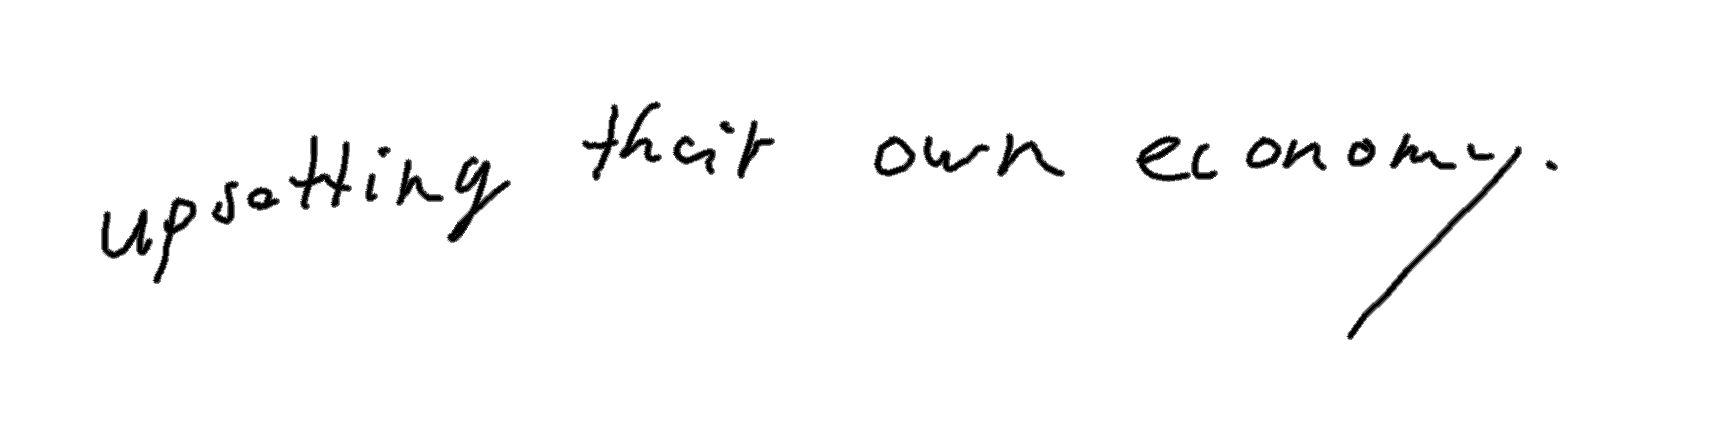 upsetting their own economy.